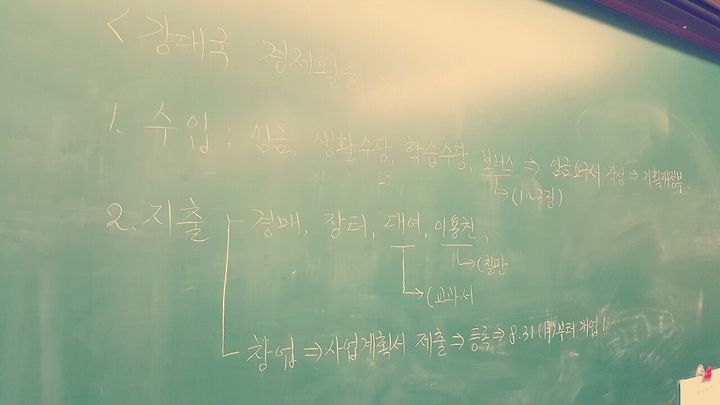 < 강대국 경제활동
1. 수입 : 임금, 생활수당, 학습수당, 보너스 ⇒ 임금요구서 작성 ⇒ 기획재정부
→ (1~3점)
2. 지출 경매, 장터, 대여, 이용권,
→ (칠판
→ (교과서
창업 ⇒ 사업계획서 제출 ⇒ 등록 ⇒ 8.31(月)부터 개업!